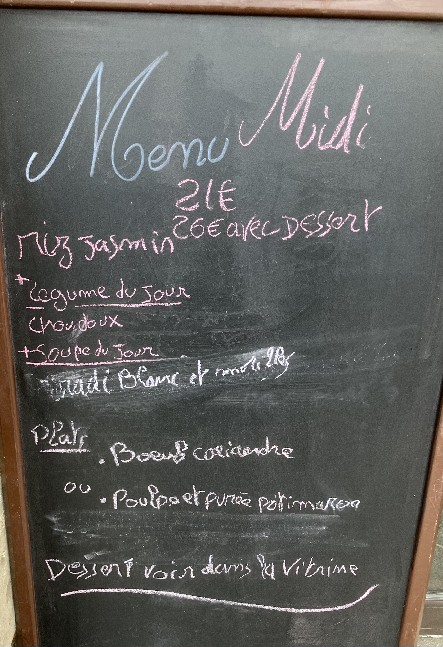 Menu Midi
21€
26€ avec Dessert
Riz Jasmin
+
Legume du Jour
Chou doux
+ Soupe du Jour
radi Blanc et
Plats
. Boeuf coriandre
ou
. Poulpe et purée potimaron
Dessert voir dans la vitrine